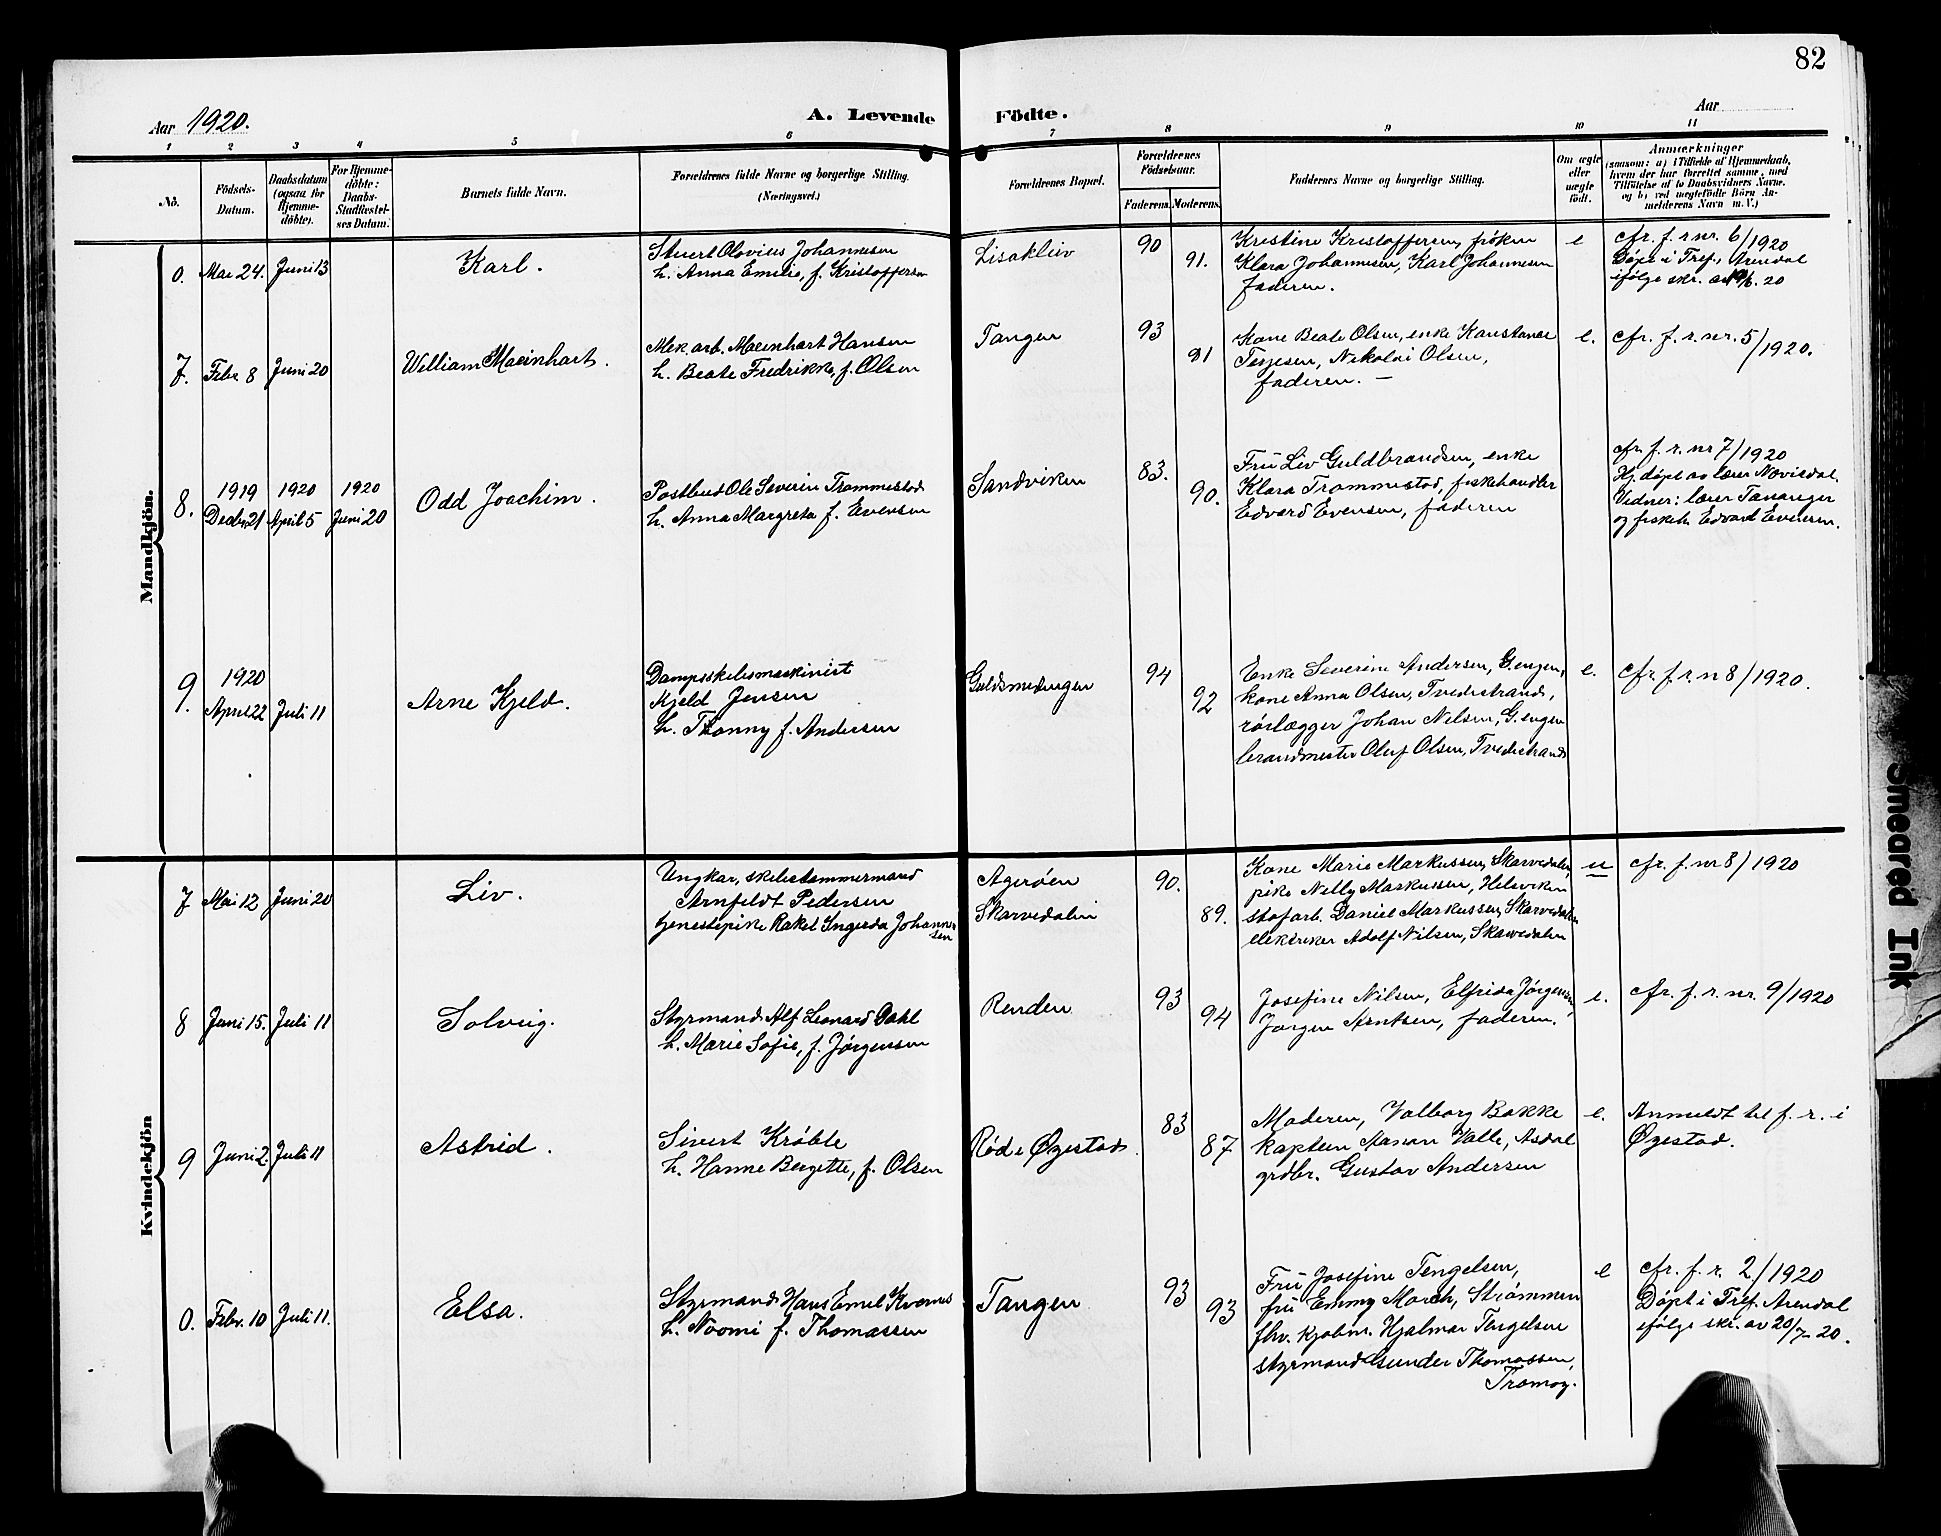 82
Aar 1920.
A. Levende Födte.
Aar
1 2 3 4 5 6 7 8 9 10 11
No.
Födsels-Datum.
Daabsdatum (ogsaa for Hjemme-döbte).
For Hjemme-döbte: Daabs-Stadfæstel-ses Datum.
Barnets fulde Navn.
Forældrenes fulde Navne og borgerlige Stilling.
(Næringsvei.)
Forældrenes Bopæl.
Forældrenes Födselsaar.
Faderens. Moderens.
Faddernes Navne og borgerlige Stilling.
Om ægte eller uægte født.
Anmærkninger
(saasom: a) i Tilfælde af Hjemmedaab, hvem der har forrettet samme, med Tilføielse af to Daabsvidners Navne. og b) ved uegtefödte Börn An-melderens Navn m. V.)
Mandkjön.
0. Mai 24. Juni 13
Karl.
Stuert Olovius Johannesen
h. Anna Emilie, f. Kristoffersen
Lisakleiv
90
91.
Kristine Kristoffersen, frøken
Klara Johannesen, Karl Johannesen
faderen.
e
cfr. f. r nr. 6/1920
Døpt i Tref., Arendal
ifølge skr. av 19/6. 20
7. Febr 8 Juni 20
William Maeinhart.
Mek. arb. Maeinhart Hansen
h. Beate Fredrikke, f. Olsen
Tangen
93
91
Kone Beate Olsen, enke Konstanse
Terjesen, Nikolai Olsen,
faderen. —
e.
cfr. f. r. nr. 5/1920.
8. 1919 Decbr. 21
1920 April 5
1920 Juni 20
Odd Joachim.
Postbud Ole Severin Trommestad
h. Anna Margreta f. Evensen
Sandviken
83.
90.
Fru Liv Guldbrandsen, enke
Klara Trommestad, fiskehandler
Edvard Evensen, faderen
cfr. f. r. nr 7/1920
Hj. døpt av lærer
Vidner: lærer Tananger
og fiskeh. Edvard Evensen.
9. 1920 April 22 Juli 11
Arne Kjeld.
Dampskibsmaskinist
Kjeld Jensen
h. Thonny f. Andersen
Guldsmedengen
94
92
Enke Severine Andersen, G.engen,
kone Anna Olsen, Tvedestrand,
rørlægger Johan Nilsen, G.engen
brandmester Oluf Olsen, Tvedestrand
e.
cfr. f. r. n 8/1920.
Kvindekjön
7 Mai 12 Juni 20
Liv.
Ungkar, skibstømmermand
Arnfeldt Pedersen
tjenestepike Rakel Ingerda Johannessen
Agerøen
Skarvedalen
90.
89.
Kone Marie Markussen, Skarvedalen
pike Nelly Markussen, Helleviken
støfarb. Daniel Markussen, Skarvedalen
elektriker Adolf Nilsen, Skarvedalen
u
cfr. f. nr 8/1920
8 Juni 15. Juli 11
Solveig.
Styrmand Alf Leonard Dahl
h. Marie Sofie, f. Jørgensen
Renden
93
94
Josefine Nilsen, Elfrida Jørgensen,
Jørgen Arntsen, faderen.
e.
cfr. f. r. nr. 9/1920
9 Juni 2. Juli 11
Astrid.
Sivert Krøble
h. Hanne Bergette, f. Olsen
Rød i Øyestad.
83
87
Moderen, Valborg Bakke
kaptein Aanon Valle, Asdal
grdbr. Gustav Andersen
e.
Anmeldt til f. r. i
Øyestad.
0. Febr. 10 Juli 11.
Elsa.
Styrmand Hans Emil Kvernes
h. Noomi f. Thomassen
Tangen
93
93
Fru Josefine Tengelsen,
fru Emmy Morch, Strømmen
fhv. kjøbm. Hjalmar Tengelsen
styrmand Gunder Thomassen,
Tromøy.
e
cfr. f. r. 2/1920
Døpt i Tref. Arendal
ifølge skr. av 20/7 20.
Smeared Ink